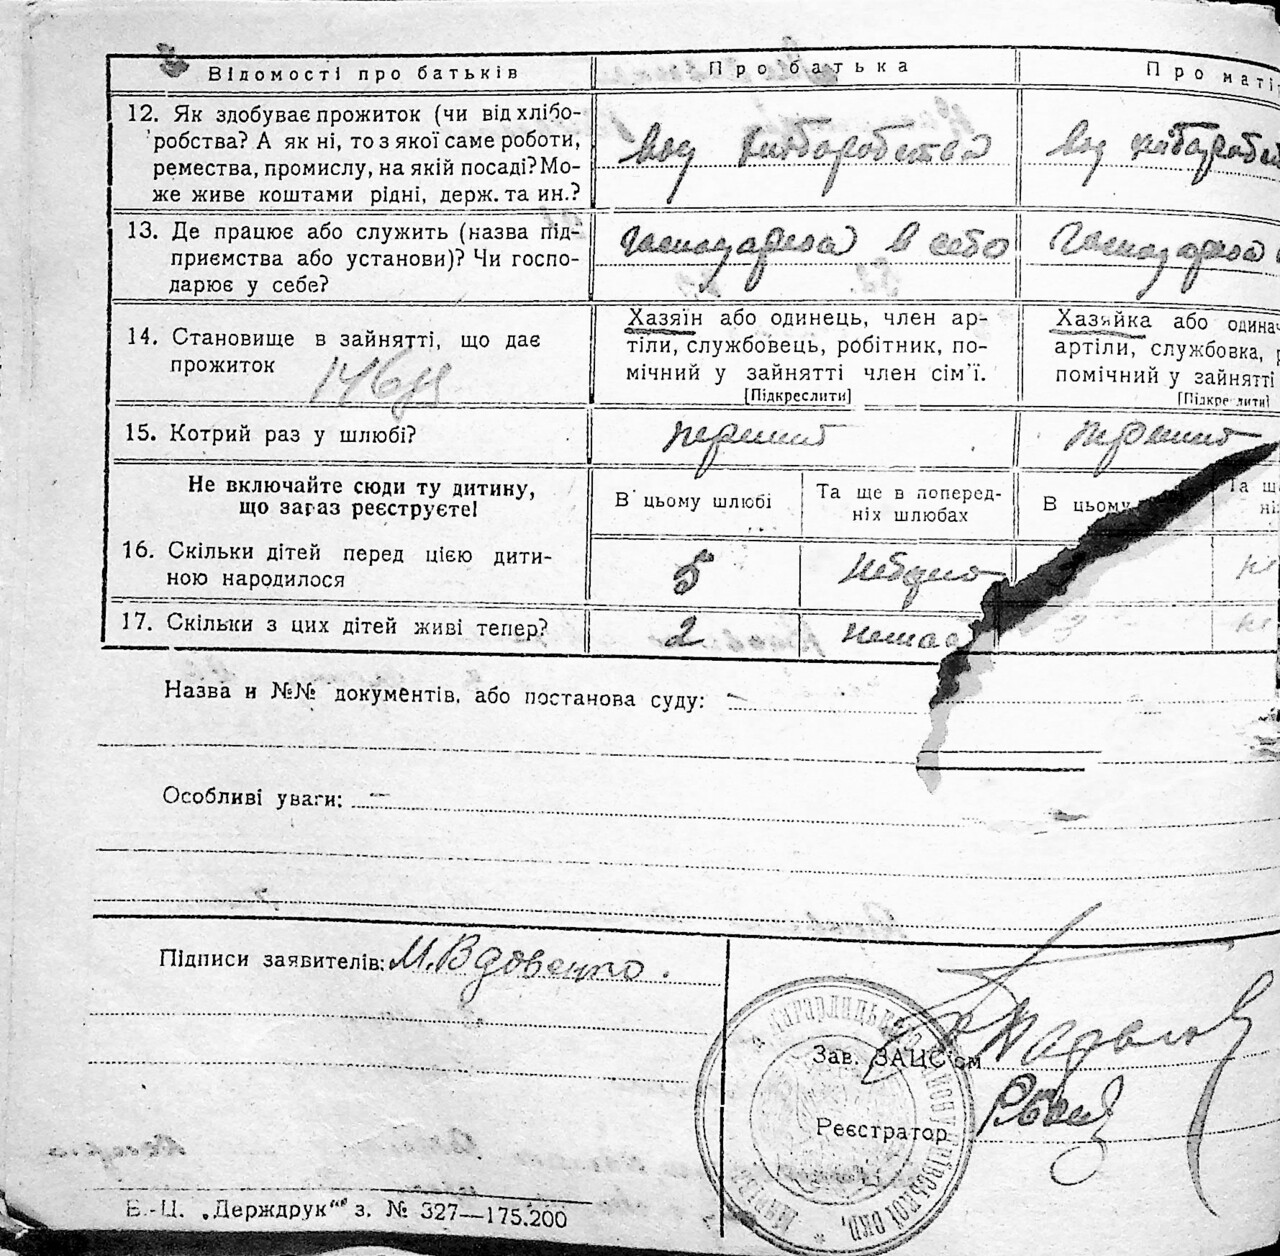 Відомості про батьків
Про батька
Про маті
12. Як здобуває прожиток (чи від хлібо-
робства? А як ні, то з якої саме роботи,
ремества, промислу, на якій посаді? Мо-
же живе коштами рідні, держ. та ин.?
від хліборобства
від хлібороб
13. Де працює або служить (назва під-
приємства або установи)? Чи госпо-
дарює у себе?
господарює в себе
господарює
14. Становище в зайнятті, що дає
прожиток
Хазяїн або одинець, член ар-
тіли, службовець, робітник, по-
мічний у зайнятті член сім'ї.
[Підкреслити]
Хазяйка або одинач
артіли, службовка, р
помічний у зайнятті
[Підкреслити]
15. Котрий раз у шлюбі?
перший
перший
Не включайте сюди ту дитину,
що зараз реєструєте!
В цьому шлюбі
Та ще в поперед-
ніх шлюбах
В цьому
Та щ
ні
16. Скільки дітей перед цією дити-
ною народилося
5
17. Скільки з цих дітей живі тепер?
2
немає
Назва и №№ документів, або постанова суду: —
Особливі уваги: —
Підписи заявителів: М. Вдовенко.
Зав. ЗАЦС'ом
Реєстратор
В.-Ц. „Держдрук“ з. № 327—175.200